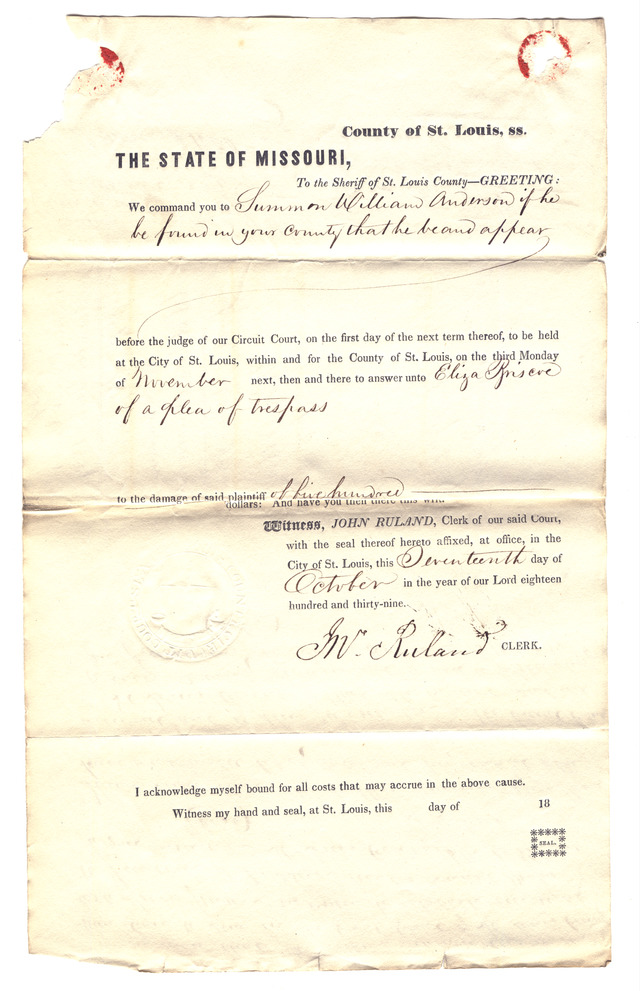 County of St. Louis, ss.
THE STATE OF MISSOURI,
To the Sheriff of St. Louis County—GREETING:
We command you to Summon William Anderson if he
be found in your County that he be and appear
before the judge of our Circuit Court, on the first day of the next term thereof, to be held
at the City of St. Louis, within and for the County of St. Louis, on the third Monday
of November next, then and there to answer unto Eliza Briscoe
of a plea of trespass
to the damage of said plaintiff of five hundred
dollars: And have you then there this writ.
Witness, JOHN RULAND, Clerk of our said Court,
with the seal thereof hereto affixed, at office, in the
City of St. Louis, this Seventeenth day of
October in the year of our Lord eighteen
hundred and thirty-nine.
Jno. Ruland CLERK.
I acknowledge myself bound for all costs that may accrue in the above cause.
Witness my hand and seal, at St. Louis, this day of 18
SEAL.